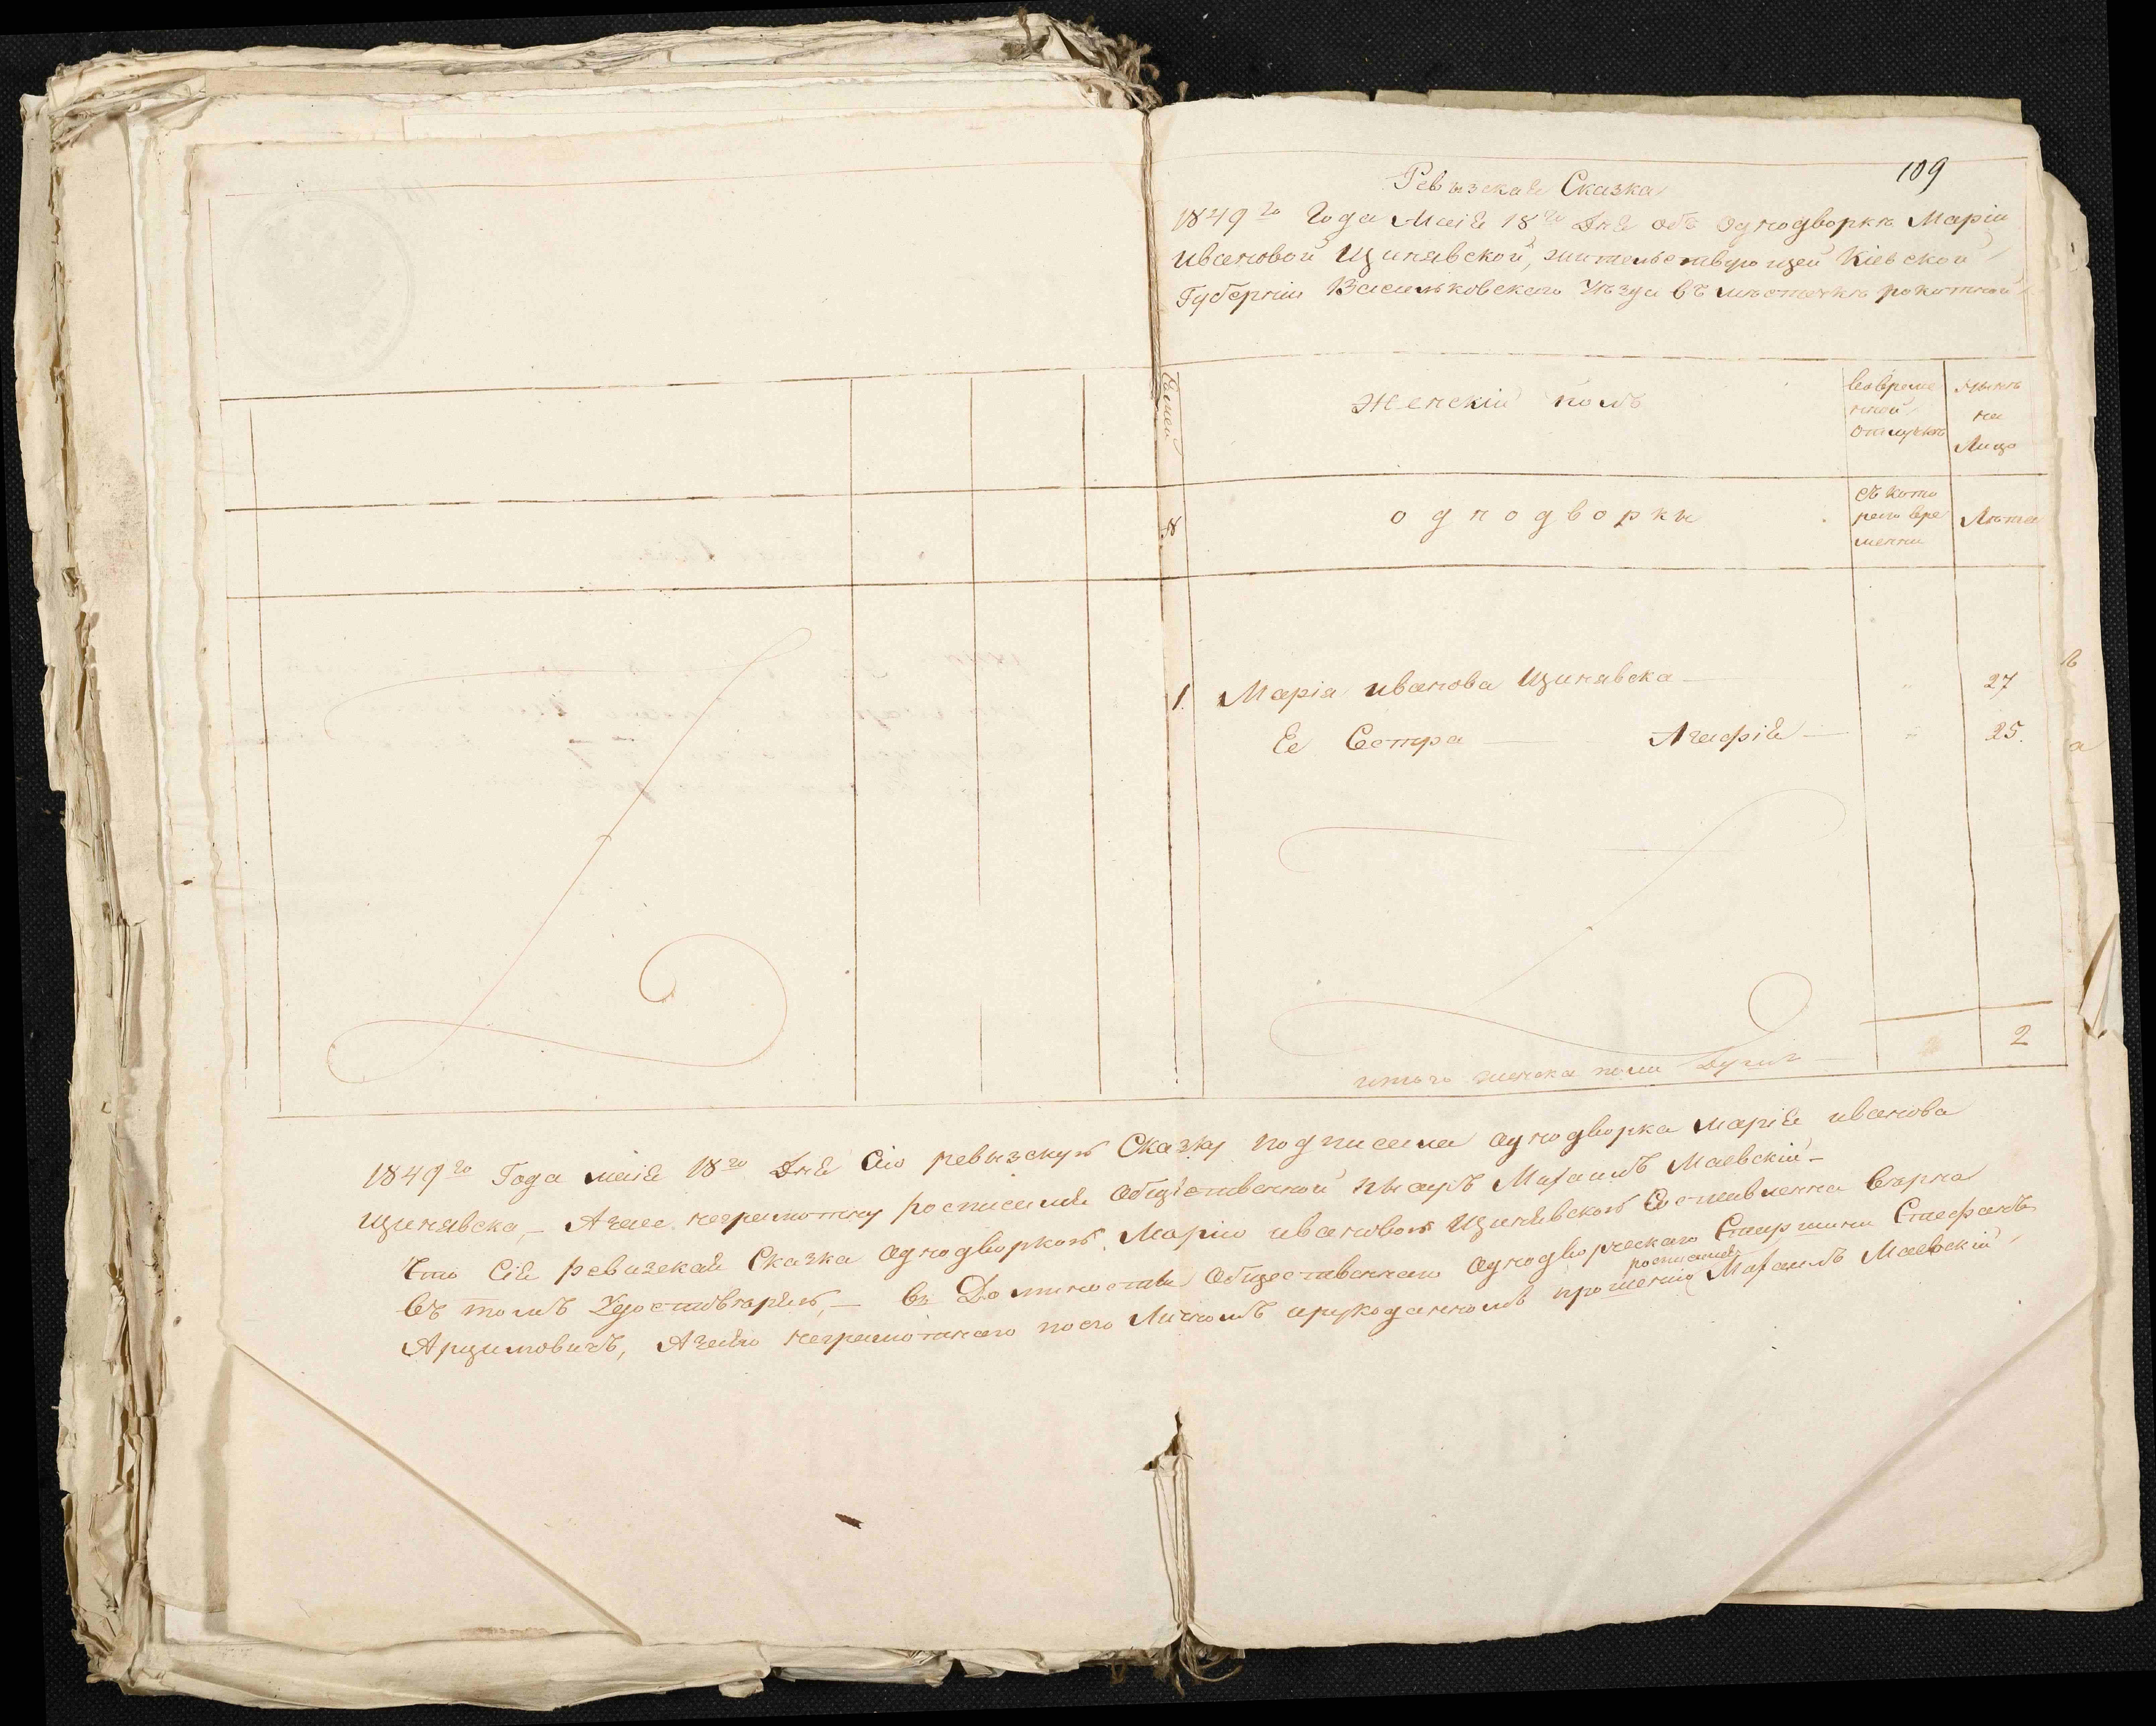 109
Ревызская Сказка
1849го Года Маія 18го Дня объ Однодворкѣ Маріи
ивановой Щинявской, жительствующей Кіевской
Губерніи Васильковского Уѣзда въ мѣстечкѣ рокитной
Женскій полъ
Вовреме
нной
отлучкѣ
Нынѣ
на
Лицо
№
однодворки
съ кото
раго вре
мени
Лѣта
1. Марія иванова Щинявска — „ 27
Ее Сестра — Агафія — „ 25.
итого женска пола Душъ — 2
1849го Года маія 18го Дня Сію ревызскую Сказку подписала однодворка марія иванова
Щинявска, — Азаее неграмотну росписался Общественной писарь Махаилъ Маевскій —
Что Сія ревизская Сказка однодворкою Марію ивановою Щинявскою Составленна вѣрна
въ томъ Удостовѣряю, — въ Должности Общественнаго однодворческаго Старшини Стефанъ
Арцимовичъ, Азаего неграмотнаго поего Личномъ ирукоданномъ прошенію росписался Махаилъ Маевскій